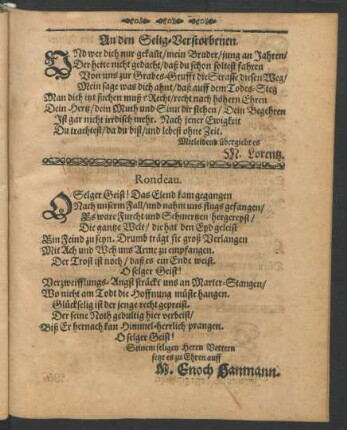 An den Selig-Verstorbenen.
UNd wer dich nur gekañt/mein Bruder/jung an Jahren/
Der hette nicht gedacht/daß du schon soltest fahren
Von uns zur Grabes-Grufft die Strasse diesen Weg/
Mein sage was dich ahnt/daß auff dem Todes-Steg
Man dich itzt suchen muß? Recht/recht nach höhern Ehren
Dein Hertz/dein Muth und Sinn dir stehen/Dein Begehren
Ist gar nicht irrdisch mehr. Nach jener Ewigkeit
Du trachtest/da du bist/und lebest ohne Zeit.
Mitleidend übergiebt es
M. Lorentz.
Rondeau.
O Selger Geist! Das Elend kam gegangen
Nach unserm Fall/und nahm uns flugs gefangen/
Es ware Furcht und Schmertzen hergereyst/
Die gantze Welt/die hat den Eyd geleist
Ein Feind zu seyn. Drumb trägt sie groß Verlangen
Mit Ach und Weh uns Arme zu empfangen.
Der Trost ist noch/daß es ein Ende weist.
O selger Geist!
Verzweifflungs-Angst streckt uns an Marter-Stangen/
Wo nicht am Todt die Hoffnung müste hangen.
Glückselig ist der jenge recht gepreist.
Der seine Noth gedultig hier verbeist/
Biß Er hernach kan Himmel-herrlich prangen.
O selger Geist!
Seinem seligen Herrn Vettern
setzt es zu Ehren auff
M. Enoch Hanmann.